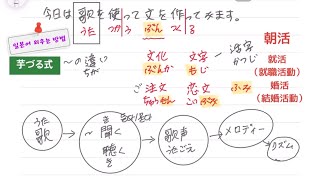 今日は歌を使って文を作ってみます。
うた つかう ぶん つくる
일본어 외우는 방법
朝活
芋づる式
～の違い
ちが
文化
ぶんか
文字
もじ
活字
かつじ
就活
(就職活動)
ご注文
ちゅうもん
恋文
こいぶみ
ふみ
婚活
(結婚活動)
うた
歌
～を聞く
き
聴く
き
歌声
うたごえ
メロディー
リズム